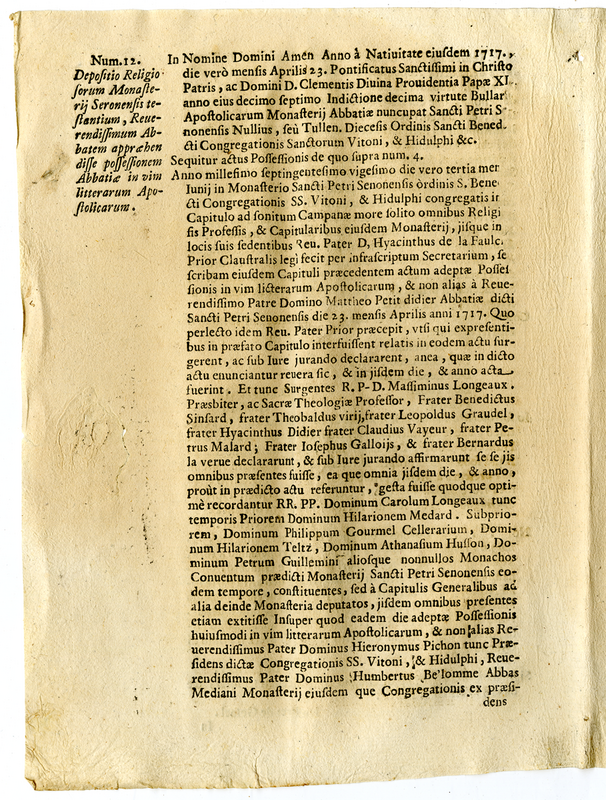 Num.12.
Depositio Religio-
sorum Monaste-
rij Seronensis te-
stantium, Reue-
rendissimum Ab-
batem appræhen
disse possessionem
Abbatiæ in vim
litterarum Apo-
stolicarum.
In Nomine Domini Amen Anno à Natiuitate eiusdem 1717.,
die verò mensis Aprilis 23. Pontificatus Sanctissimi in Christo
Patris, ac Domini D. Clementis Diuina Prouidentia Papæ XI.
anno eius decimo septimo Indictione decima virtute Bullar
Apostolicarum Monasterij Abbatiæ nuncupat Sancti Petri S
nonensis Nullius, seù Tullen. Diecesis Ordinis Sancti Bened
cti Congregationis Sanctorum Vitoni, & Hidulphi &c.
Sequitur actus Possessionis de quo supra num. 4.
Anno millesimo septingentesimo vigesimo die vero tertia mer
Iunij in Monasterio Sancti Petri Senonensis òrdinis S. Bene
cti Congregationis SS. Vitoni, & Hidulphi congregatis in
Capitulo ad sonitum Campanæ more solito omnibus Religi
sis Professis, & Capitularibus eiusdem Monasterij, jisque in
locis suis sedentibus Reu. Pater D, Hyacinthus de la Faulc.
Prior Claustralis legi fecit per infrascriptum Secretarium, se
scribam eiusdem Capituli præcedentem actum adeptæ Posses
sionis in vim licterarum Apostolicarum, & non aliàs à Reue-
rendissimo Patre Domino Mattheo Petit didier Abbatiæ dicti
Sancti Petri Senonensis die 23. mensis Aprilis anni 1717. Quo
perlecto idem Reu. Pater Prior præcepit, vtsi qui expresenti-
bus in præfato Capitulo interfuissent relatis in eodem actu sur-
gerent, ac sub Iure jurando declararent, anea, quæ in dicto
actu enunciantur reuera sic, & in jisdem die, & anno acta
fuerint. Et tunc Surgentes R. P-D. Massiminus Longeaux.
Præsbiter, ac Sacræ Theologiæ Professor, Frater Benedictus
Sinsard, frater Theobaldus virij, frater Leopoldus Graudel,
frater Hyacinthus Didier frater Claudius Vayeur, frater Pe-
trus Malard; Frater Iosephus Galloijs, & frater Bernardus
la verue declararunt, & sub Iure jurando affirmarunt se se jis
omnibus præsentes fuisse, ea que omnia jisdem die, & anno,
proùt in prædicto actu referuntur, gesta fuisse quodque opti-
mè recordantur RR. PP. Dominum Carolum Longeaux tunc
temporis Priorem Dominum Hilarionem Medard. Subprio-
rem, Dominum Philippum Gourmel Cellerarium, Domi-
num Hilarionem Teltz, Dominum Athanasium Husson, Do-
minum Petrum Guillemini aliosque nonnullos Monachos
Conuentum prædicti Monasterij Sancti Petri Senonensis eo-
dem tempore, constituentes, sed à Capitulis Generalibus ad
alia deinde Monasteria deputatos, jisdem omnibus presentes
etiam extitisse Insuper quod eadem die adeptæ Possessionis
huiusmodi in vim litterarum Apostolicarum, & non alias Re-
uerendissimus Pater Dominus Hieronymus Pichon tunc Præ-
sidens dictæ Congregationis SS. Vitoni, & Hidulphi, Reue-
rendissimus Pater Dominus Humbertus Be'lomme Abbas
Mediani Monasterij ejusdem que Congregationis ex præsi-
dens